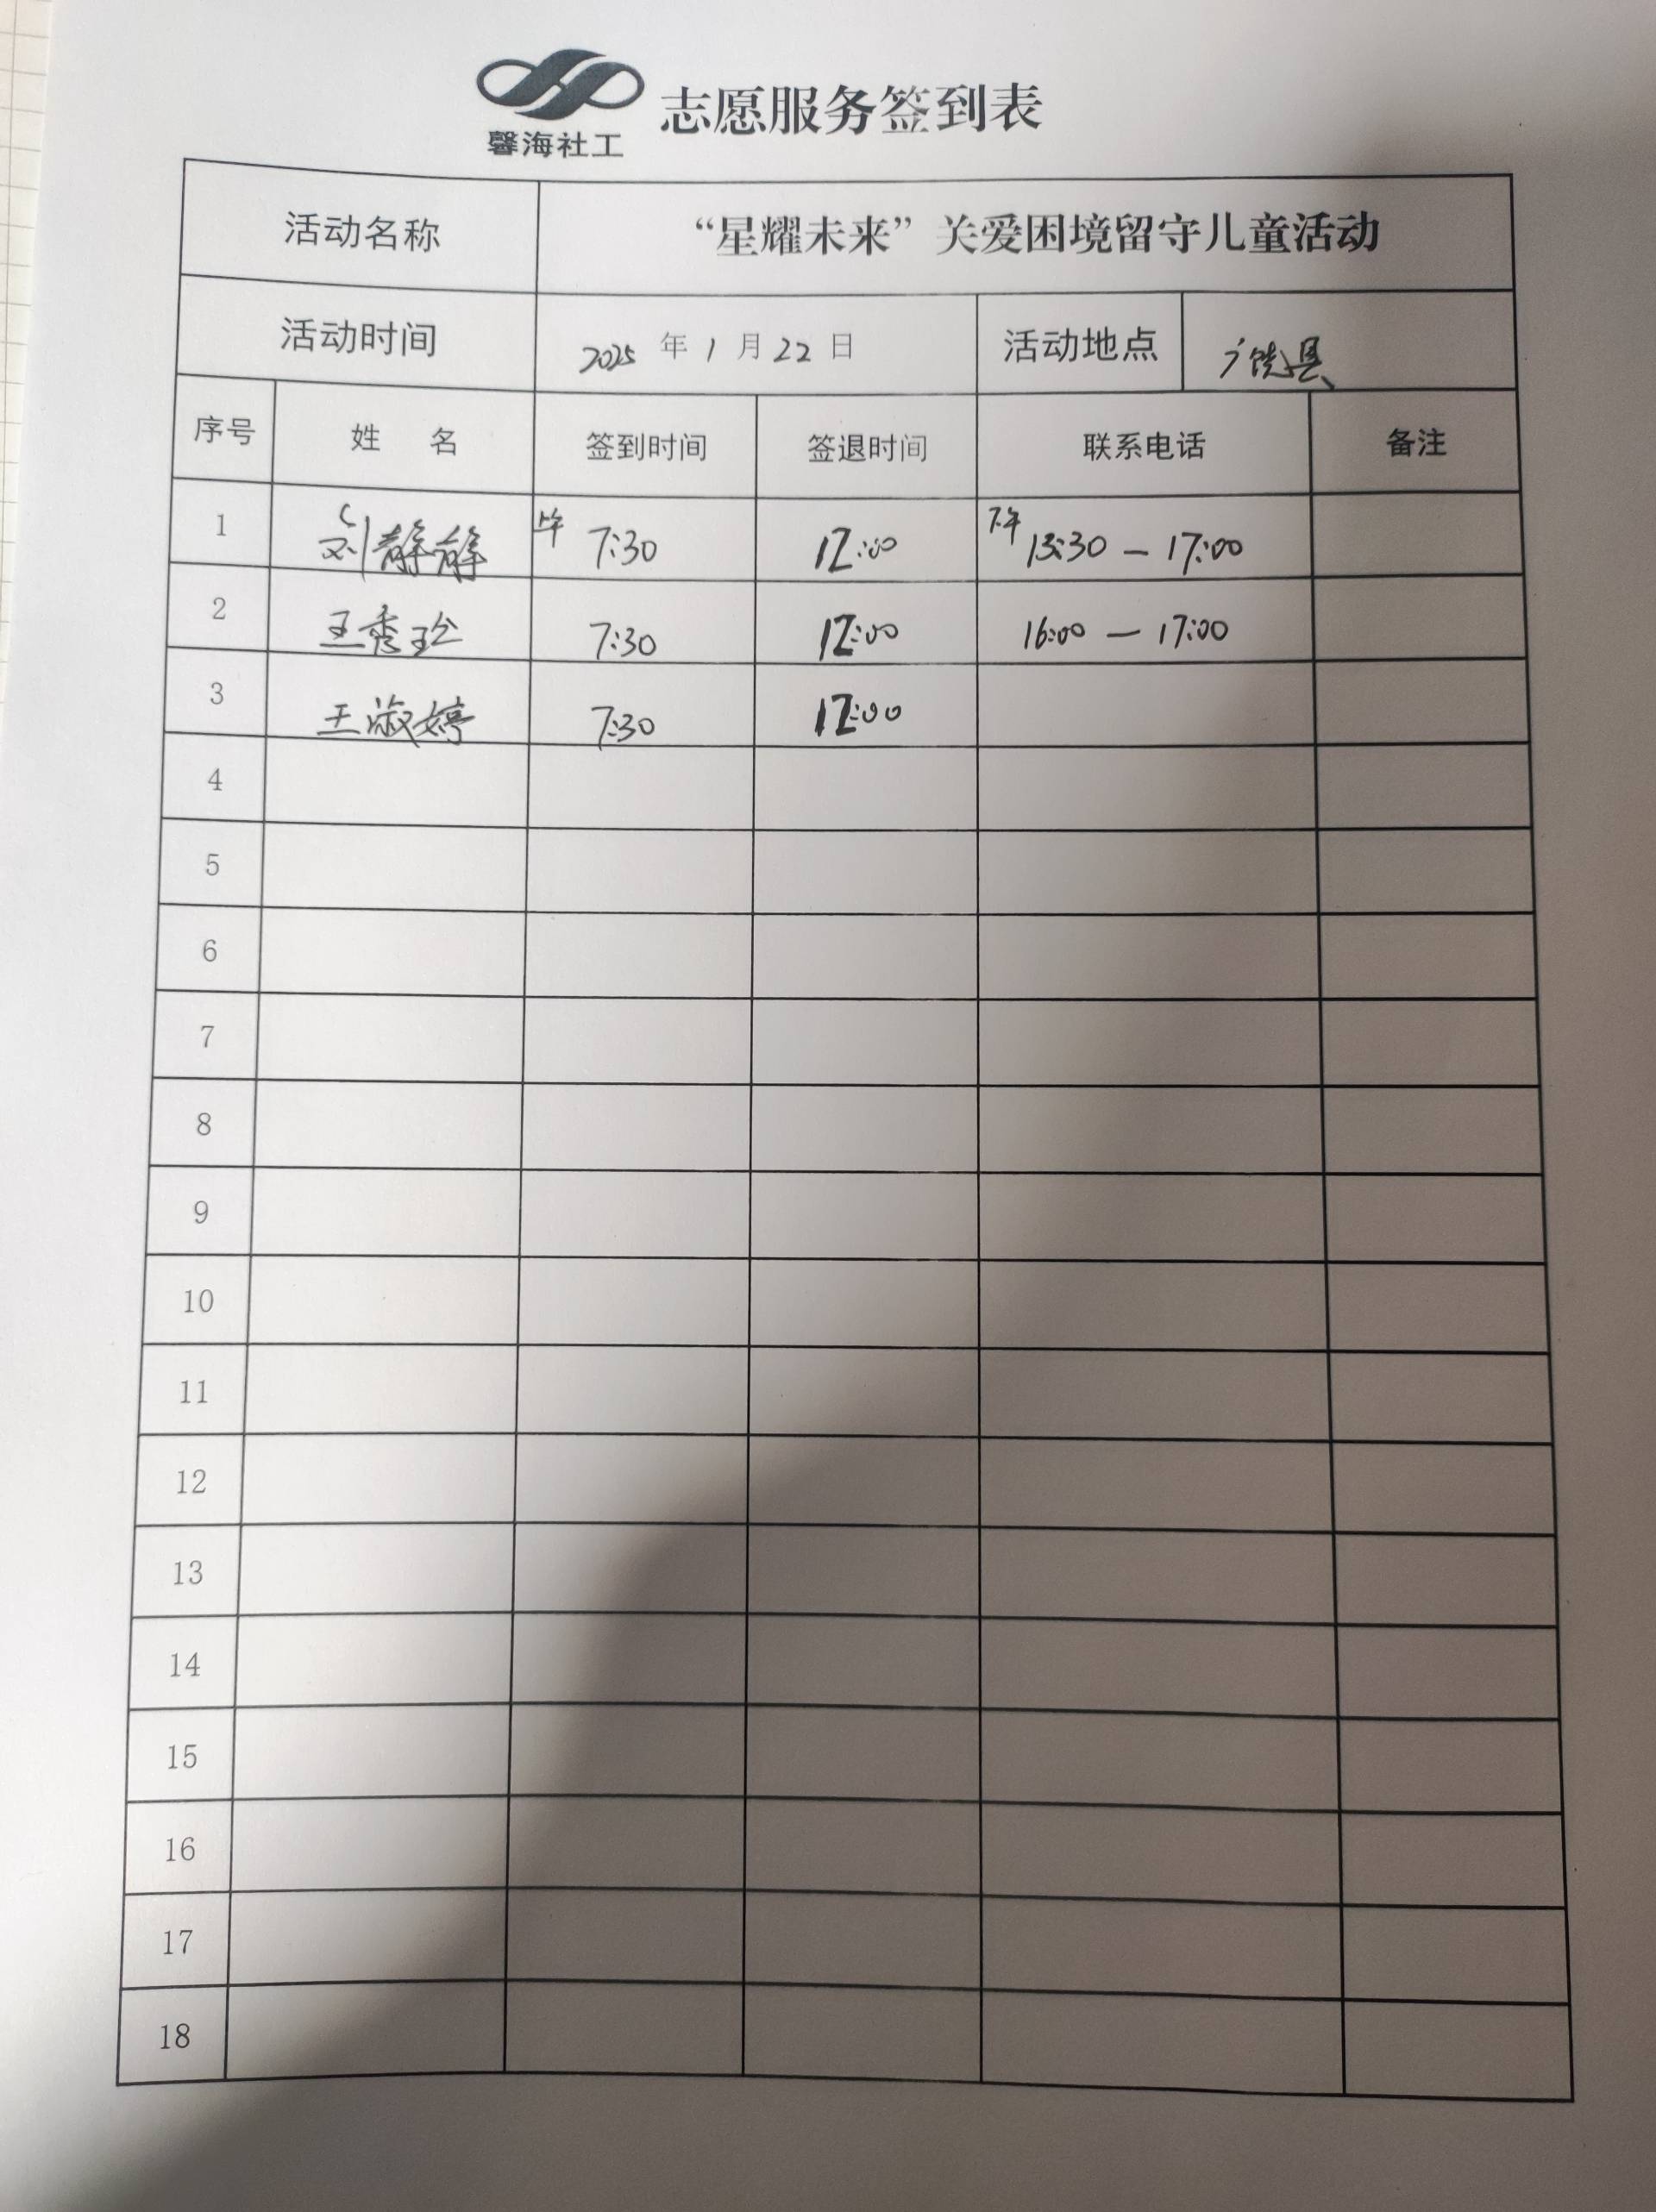 馨海社工
志愿服务签到表
活动名称 “星耀未来”关爱困境留守儿童活动
活动时间 2025 年 1 月 22 日 活动地点 广饶县
序号 姓 名 签到时间 签退时间 联系电话 备注
1 刘静静 上午 7:30 12:00 下午 13:30 — 17:00
2 王秀玲 7:30 12:00 16:00 — 17:00
3 王淑婷 7:30 12:00
4
5
6
7
8
9
10
11
12
13
14
15
16
17
18